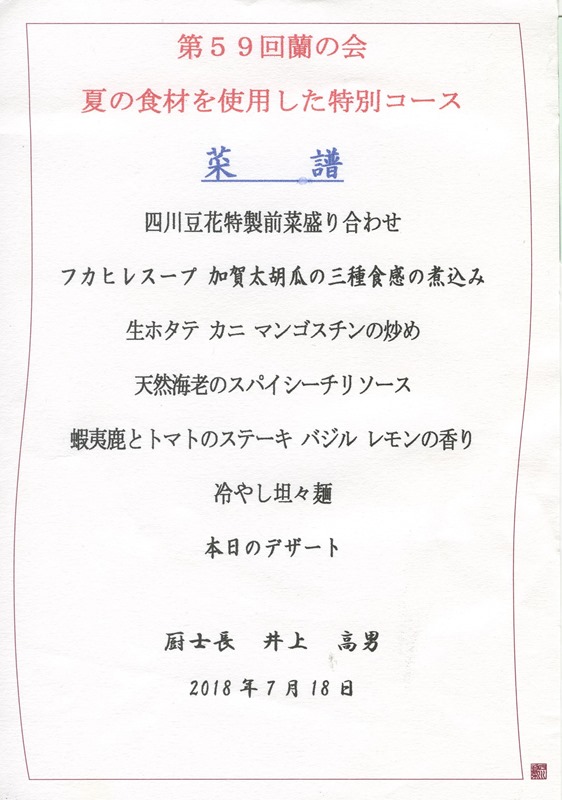 第５９回蘭の会
夏の食材を使用した特別コース
菜　　譜
四川豆花特製前菜盛り合わせ
フカヒレスープ 加賀太胡瓜の三種食感の煮込み
生ホタテ カニ マンゴスチンの炒め
天然海老のスパイシーチリソース
蝦夷鹿とトマトのステーキ バジル レモンの香り
冷やし坦々麺
本日のデザート
厨士長　井上　高男
2018 年 7 月 18 日